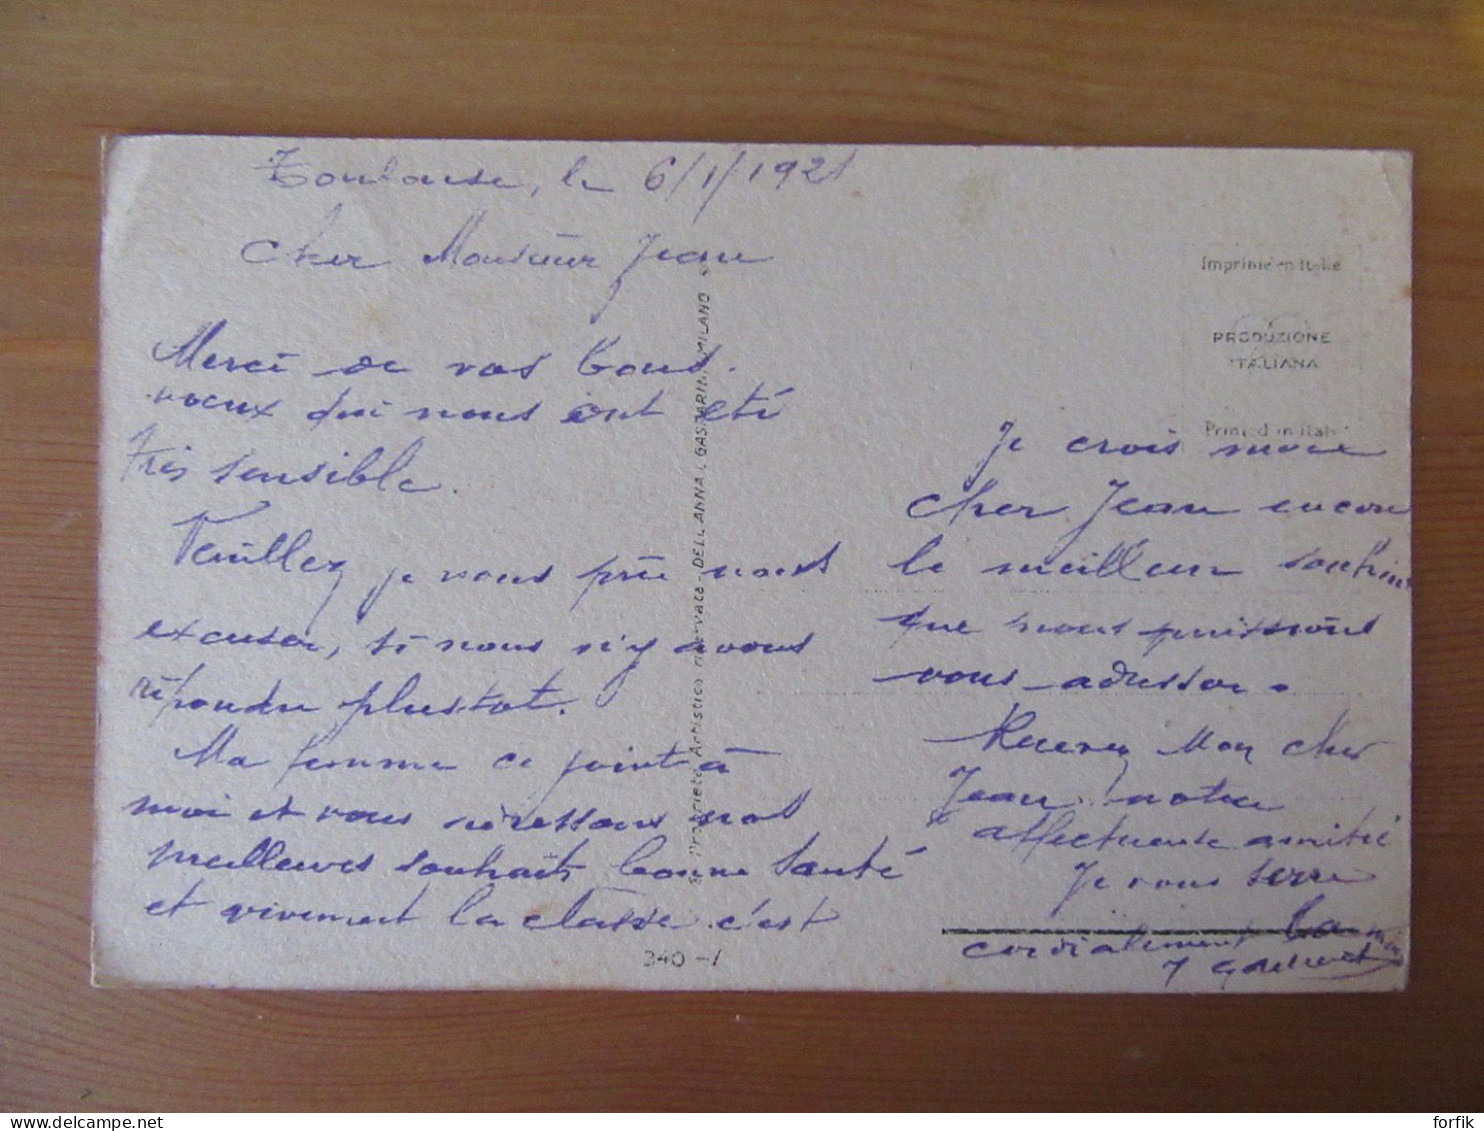 Toulouse, le 6/1/1921
Cher Monsieur Jean
Merci de vos bons
voeux qui nous ont été
très sensible.
Veuillez je vous prie nous
excuser, si nous n'y avons
répondu plustot.
Ma femme ce joint à
moi et vous adressons nos
meilleures souhaits bonne santé
et vivement la classe c'est
Je crois mon
cher Jean encore
le meilleur souhait
que nous puissions
vous adresser.
Recevez Mon cher
Jean notre
affectueuse amitié
Je vous serre
la main
cordialement
Imprimé en Italie
PRODUZIONE
ITALIANA
Printed in Italy
Proprietà Artistica riservata - DELL'ANNA & GASPARINI - MILANO
340 - 1
forfik